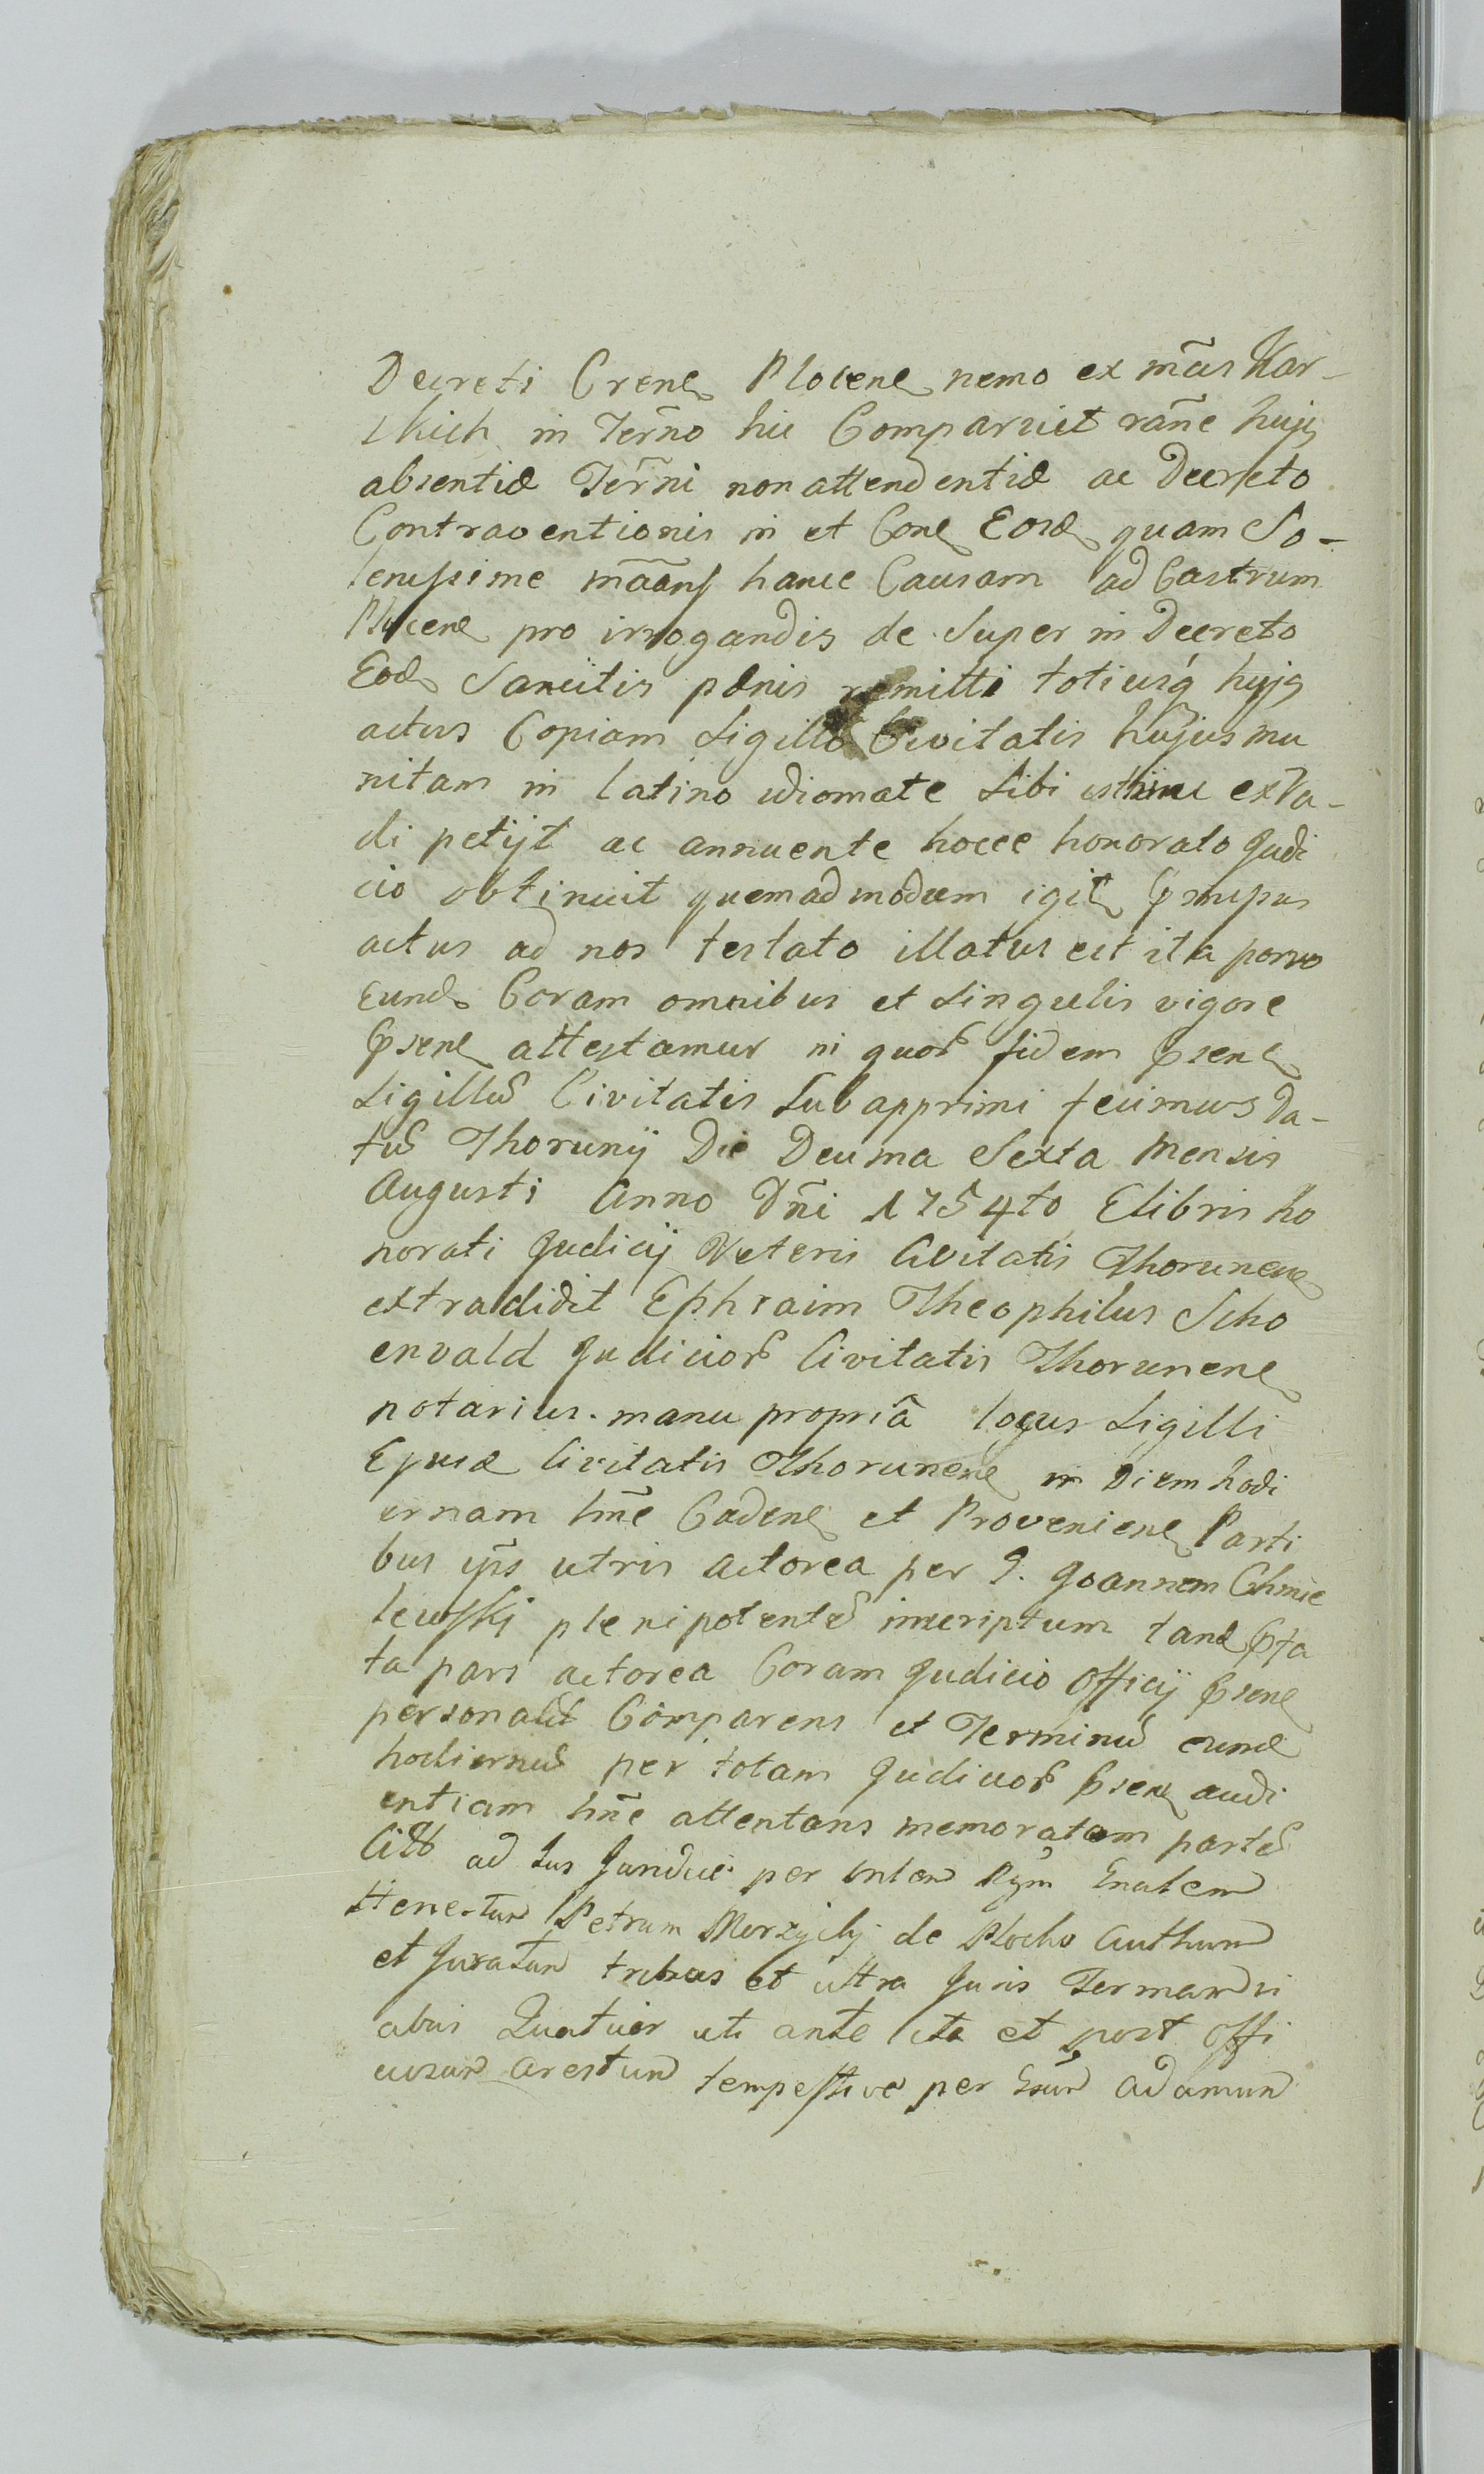 Decreti Crens Plocens nemo ex mãis Kar-
skich in Terñno hic Comparuit rañe hujs
absentiæ Terñi non attendentiæ ac Decreto
Contraventionis in et Cone Eosd quam So-
lenissime mãans hance Causam ad Castrum
Plocens pro irrogandis de Super in Decreto
Eod Sancitis pænis remitti totiusq hujs
actus Copiam Sigillo Civitatis hujus mu
nitam in latino idiomate Sibi isthinc extra-
di petijt ac annuente hocce honorato Judi
cio obtinuit quemadmodum igit
actus ad nos testato illatus est ita porro
Eund Coram omnibus et Singulis vigore
psens attestamur in quor fidem psens
Sigillu Civitatis Subapprimi fecimus Da-
tu Thorunij Die Decima Sexta Mensis
Augusti Anno Dñi 1754to Elibris ho
norati Judicij Veteris Civitatis Thorunens
extradidit Ephraim Theophilus Scho
envald Judicior Civitatis Thorunens
notarius. manu propriâ locus Sigilli
Ejusd Civitatis Thorunens in Diem hodi
ernam hñe Cadens et Proveniens Parti
bus ijs utris actorea per G. Joannem Chmie
lewski plenipotente inscriptum tand pta
ta pars actorea Coram Judicio Officij psens
personalit Comparens et Terminu eund
hodiernu per totam Judicior psens audi
entiam hñe attentans memoratam parte
Citt ad Jus per
Petrum de Plocko Authum
et Juratum tribus et ultra Juris Termandi
abus Quatuor uti ante ita et post Offi
arestum tempestive per Adamum